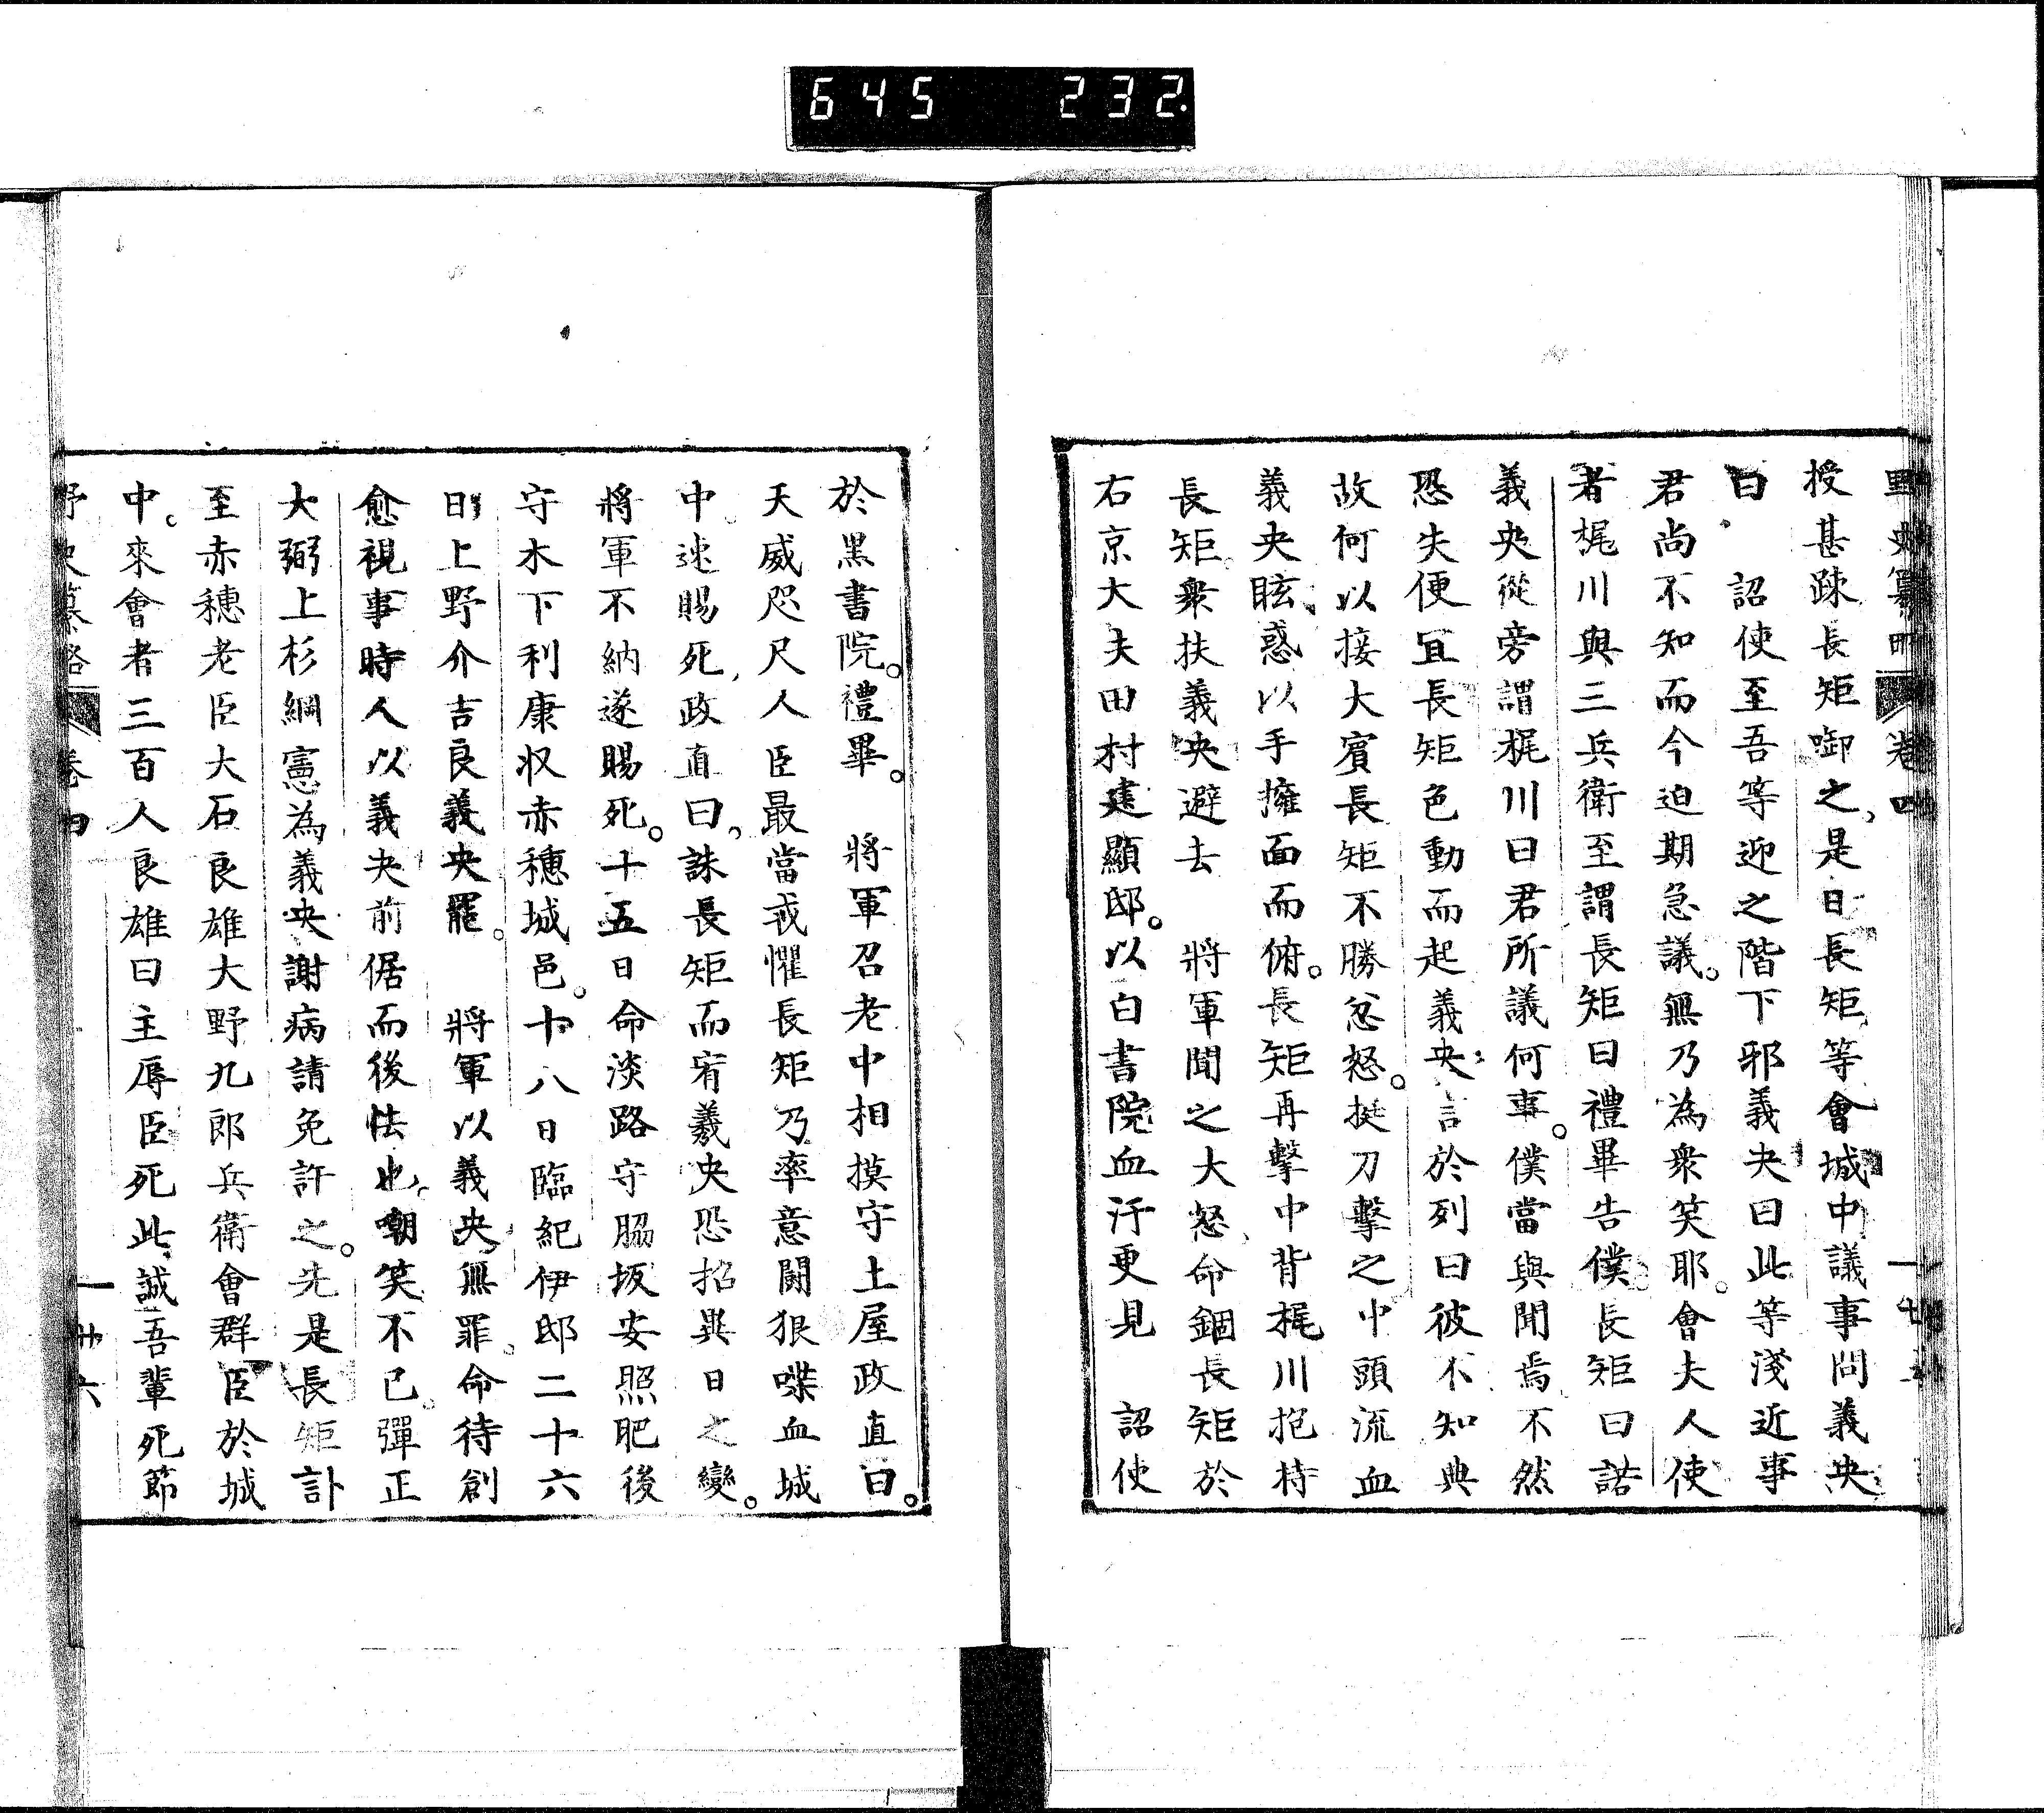 645 232.
授甚踈長矩啣之是日長矩等會城中議事問義央
曰 詔使至吾等迎之階下邪義央曰此等淺近事
君尚不知而今迫期急議。無乃為衆笑耶。會夫人使
者梶川與三兵衛至謂長矩曰禮畢告僕長矩曰諾
義央從旁謂梶川曰君所議何事。僕當與聞焉不然
恐失便冝長矩色動而起義央言於列曰彼不知典
故何以接大賓長矩不勝忿怒。挺刀擊之中頭流血
義央眩惑以手擁面而俯。長矩再擊中背梶川抱持
長矩衆扶義央避去 將軍聞之大怒命錮長矩於
右京大夫田村建顯邸。以白書院血汙更見 詔使
於黑書院。禮畢。 將軍召老中相摸守土屋政直曰。
天威咫尺人臣最當戒懼長矩乃率意鬪狠喋血城
中速賜死政直曰誅長矩而宥義央恐招異日之變。
將軍不納遂賜死。十五日命淡路守脇坂安照肥後
守木下利康収赤穗城邑。十八日臨紀伊邸二十六
日上野介吉良義央罷。 將軍以義央無罪。命待創
愈視事時人以義央前倨而後怯也嘲笑不已。彈正
大弼上杉綱憲為義央謝病請免許之。先是長矩訃
至赤穗老臣大石良雄大野九郎兵衛會群臣於城
中。來會者三百人良雄曰主辱臣死此誠吾輩死節
卷四 廾六